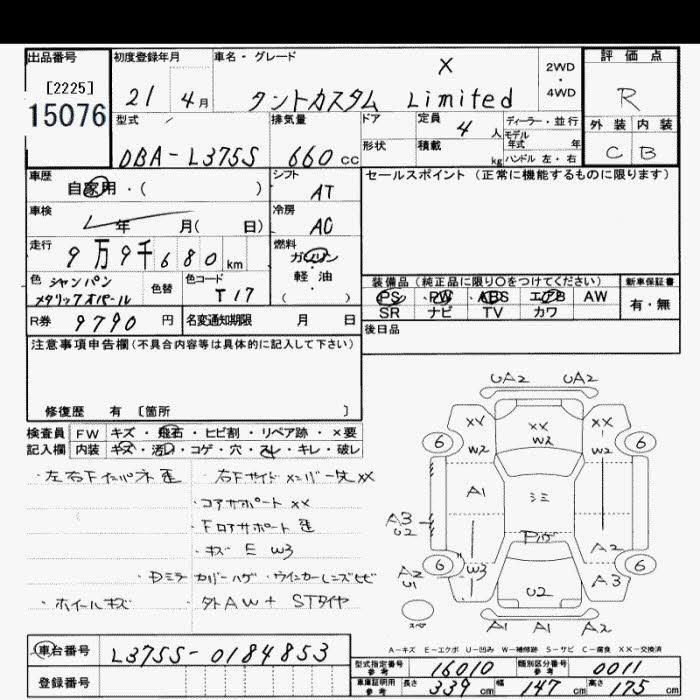 出品番号 初度登録年月 車名・グレード 評価点
[2225] 15076
21 4月 タントカスタム X Limited 2WD・4WD R
型式 排気量 ドア 定員 4人 ディーラー・並行 外装 内装
モデル年式 年
DBA-L375S 660cc 形状 積載 kg ハンドル 左・右 C B
車歴 自家用・( ) シフト AT セールスポイント (正常に機能するものに限ります)
車検 年 月( 日) 冷房 AC
走行 9万9千680km 燃料 ガソリン・軽油 ( )
色 シャンパンメタリックオパール 色替 色コード T17
装備品 (純正品に限り○をつけてください) 新車保証書
PS PW ABS エアB AW 有・無
SR ナビ TV カワ
R券 9790円 名変通知期限 月 日 後日品
注意事項申告欄(不具合内容等は具体的に記入して下さい)
修復歴 有 [箇所 ]
検査員 FW キズ・飛石・ヒビ割・リペア跡・×要
記入欄 内装 キズ・汚レ・コゲ・穴・スレ・キレ・破レ
・左右Fインパネ歪 ・右Fサイドメンバー先XX
・コアサポートXX
・Fロアサポート歪
・キズ E W3
・Dミラーカバーハゲ・ウインカーレンズヒビ
・ホイールキズ ・外AW+STタイヤ
UA2 UA2
XX XX XX
W2 W2 W2
6 6
A1 シミ
A3 U2
Pハゲ A2
6 6
A2 U1 W3 A3
U2
スペア
A1 A1 A2
A-キズ E-エクボ U-凹み W-補修跡 S-サビ C-腐食 XX-交換済
車台番号 L375S-0184853
登録番号
型式指定番号 参考 16010 類別区分番号 参考 0011
車庫証明用 参考 長さ 339cm 幅 147cm 高さ 175cm